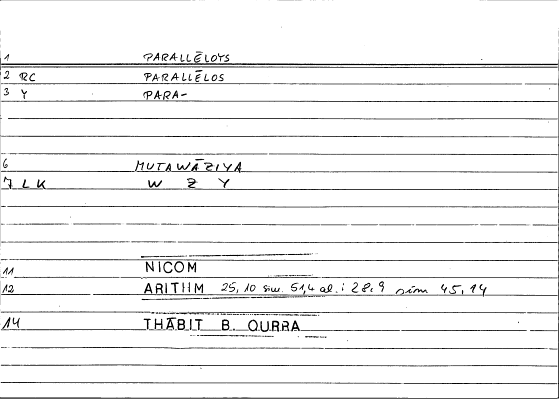 1 PARALLĒLOYS
2 RC PARALLĒLOS
3 Y PARA-
6 MUTAWĀZIYA
7 LK W Z Y
11 NICOM
12 ARITHM 25, 10 sim. 51,4 al. : 28,9 sim 45, 14
14 THĀBIT B. QURRA